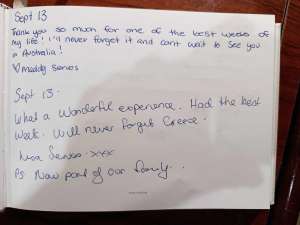 Sept 13
Thank you so much for one of the best weeks of
my life! I'll never forget it and can't wait to see you
in Australia!
♡Maddy Servos
Sept 13.
What a wonderful experience. Had the best
week. Will never forget Greece.
Lisa Servos. xxx
PS. Now part of our family.